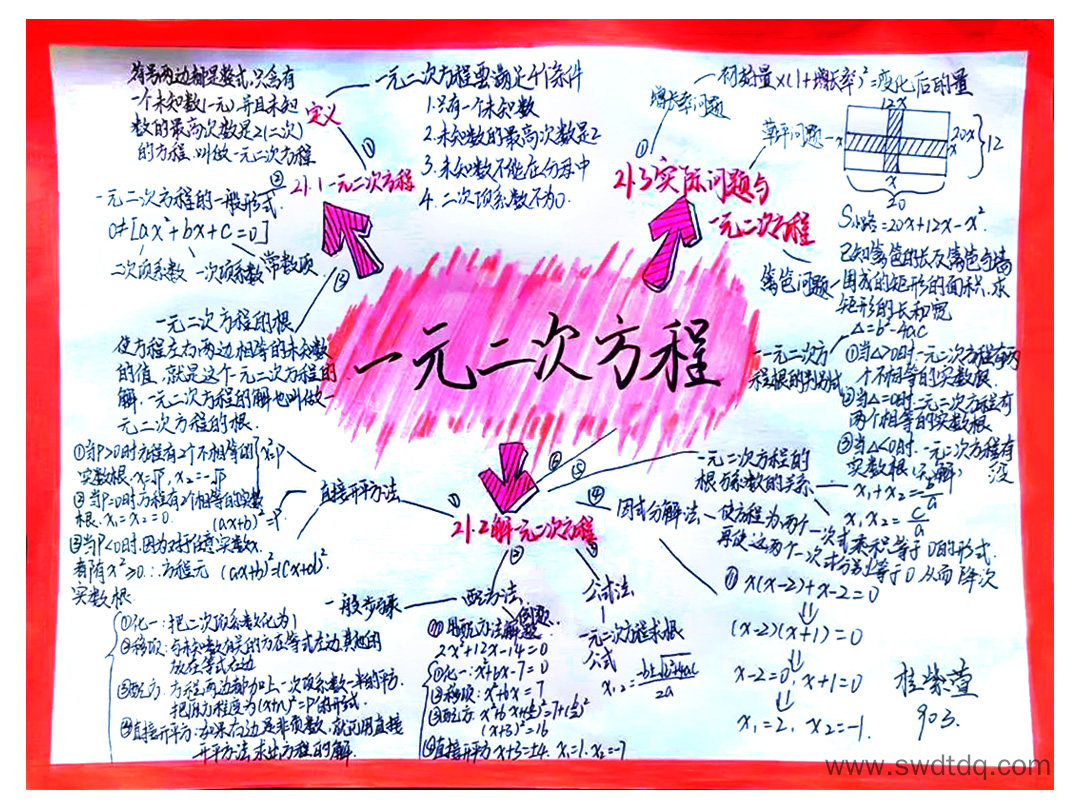 一元二次方程
21.1一元二次方程
①
定义
等号两边都是整式,只含有
一个未知数(一元),并且未知
数的最高次数是2(二次)
的方程,叫做一元二次方程
一元二次方程要满足4个条件
1.只有一个未知数
2.未知数的最高次数是2
3.未知数不能在分母中
4.二次项系数不为0.
②
一元二次方程的一般形式.
0≠[ax²+bx+c=0]
二次项系数 一次项系数 常数项
③
一元二次方程的根
使方程左右两边相等的未知数
的值,就是这个一元二次方程的
解,一元二次方程的解也叫做一
元二次方程的根.
21.3实际问题与
一元二次方程
①
增长率问题
初始量×(1+增长率)²=变化后的量
草坪问题
12x
20x
12
x
x
x
20
S小路=20x+12x-x².
篱笆问题
已知篱笆的长及篱笆与墙
围成的矩形的面积,求
矩形的长和宽
21.2解一元二次方程
①
直接开平方法
x²=P
①当P>0时方程有2个不相等的
实数根.x₁=√P, x₂=-√P
②当P=0时方程有2个相等的实数
根.x₁=x₂=0.
③当P<0时.因为对任意实数x.
都有x²≥0.∴方程无
实数根
(ax+b)²=P
②
配方法
一般步骤
①化一:把二次项系数化为1
放在等式右边
③配方:方程两边都加上一次项系数一半的平方.
把原方程变为(x+n)²=P的形式.
④直接开平方:如果右边是非负数,就可用直接
开平方法求出方程的解.
例题.
用配方法解题
2x²+12x-14=0
①化一:x²+6x-7=0
②移项:x²+6x=7
(x+3)²=16
④直接开平方 x+3=±4. x₁=1. x₂=-7
公式法
一元二次方程求根
公式
④
因式分解法
使方程为两个一次式乘积等于0的形式.
再使这两个一次式分别等于0从而降次
x(x-2)+x-2=0
⇓
(x-2)(x+1)=0
⇓
x-2=0, x+1=0
⇓
x₁=2, x₂=-1.
⑤
一元二次方程的
根与系数的关系
x₁x₂=c/a
⑥
一元二次方
程根的判别式
Δ=b²-4ac
①当Δ>0时.一元二次方程有两
个不相等的实数根.
②当Δ=0时.一元二次方程有
两个相等的实数根
③当Δ<0时.一元二次方程没有
实数根(无解)
903.
www.swdtdq.com